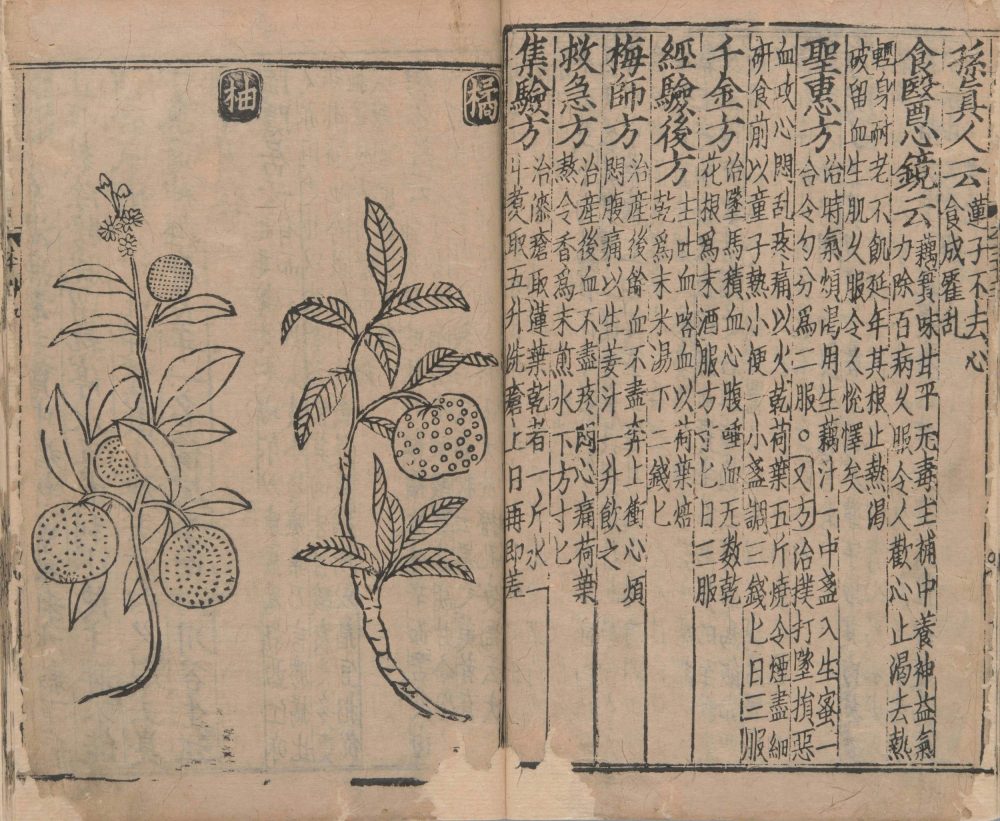 孫真人云
蓮子不去心
食成霍乱
食醫心鏡云
藕實味甘平无毒主補中養神益氣
力除百病久服令人歡心止渴去熱
輕身耐老不飢延年其根止熱渴
破留血生肌久服令人悅懌矣
聖惠方
治時氣煩渴用生藕汁一中盞入生蜜一
合令勻分爲二服。又方治撲打墜損惡
血攻心悶乱疼痛以火乾荷葉五斤燒令煙盡細
研食前以童子熱小便一小盞調三錢匕日三服
千金方
治墜馬積血心腹唾血无数乾
花根爲末酒服方寸匕日三服
經驗後方
主吐血咯血以荷葉焙
乾爲末米湯下二錢匕
梅師方
治產後餘血不盡奔上衝心煩
悶腹痛以生姜汁一升飲之
救急方
治產後血不盡疼悶心痛荷葉
熬令香爲末煎水下方寸匕
集驗方
治漆瘡取蓮葉乾者一斤水一
斗煮取五升洗瘡上日再即差
橘
柚